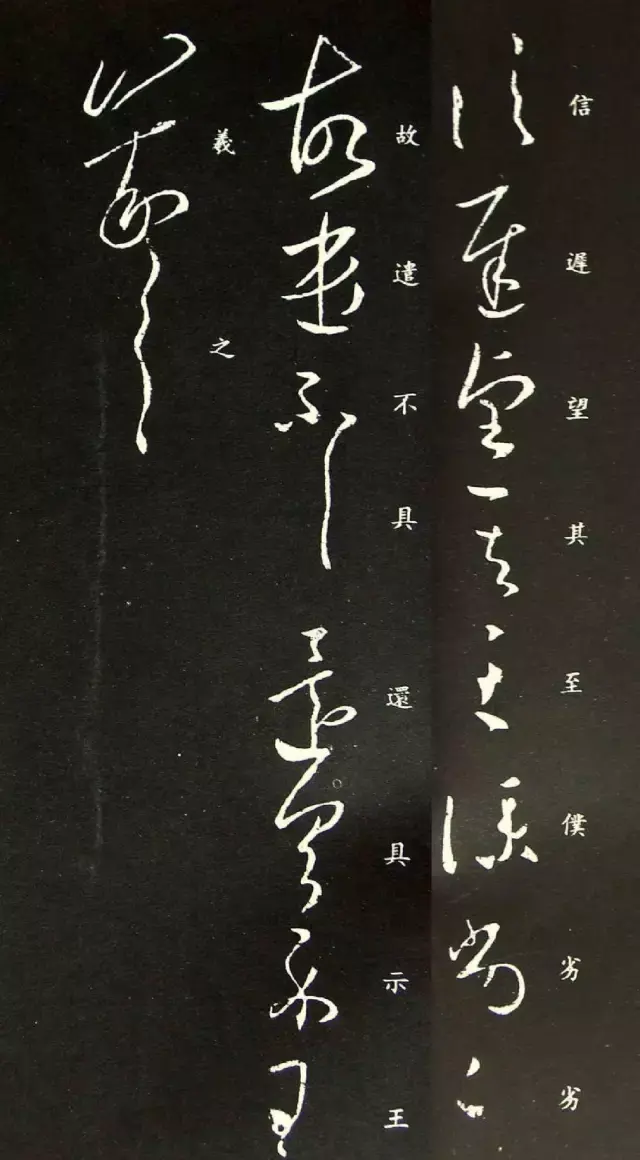 信遲望其至僕劣劣
故遣不具還具示王
羲之